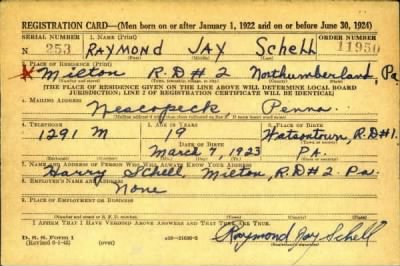 REGISTRATION CARD—(Men born on or after January 1, 1922 and on or before June 30, 1924)
SERIAL NUMBER 1. NAME (Print) ORDER NUMBER
N 253 RAYMOND JAY Schell 11950
(First) (Middle) (Last)
2. PLACE OF RESIDENCE (Print)
X Milton R.D.#2 Northumberland, Pa
(Number and street) (Town, township, village, or city) (County) (State)
[THE PLACE OF RESIDENCE GIVEN ON THE LINE ABOVE WILL DETERMINE LOCAL BOARD
JURISDICTION; LINE 2 OF REGISTRATION CERTIFICATE WILL BE IDENTICAL]
3. MAILING ADDRESS
Nescopeck Penna.
4. TELEPHONE 5. AGE IN YEARS 6. PLACE OF BIRTH
1291 M 19 Watsontown, R.D#1.
DATE OF BIRTH
March 7, 1923 Pa.
7. NAME AND ADDRESS OF PERSON WHO WILL ALWAYS KNOW YOUR ADDRESS
Harry Schell, Milton, R.D#2 Pa.
8. EMPLOYER'S NAME AND ADDRESS
None
9. PLACE OF EMPLOYMENT OR BUSINESS
(Number and street or R. F. D. number) (Town) (County) (State)
I AFFIRM THAT I HAVE VERIFIED ABOVE ANSWERS AND THAT THEY ARE TRUE.
D. S. S. Form 1
Raymond Jay Schell